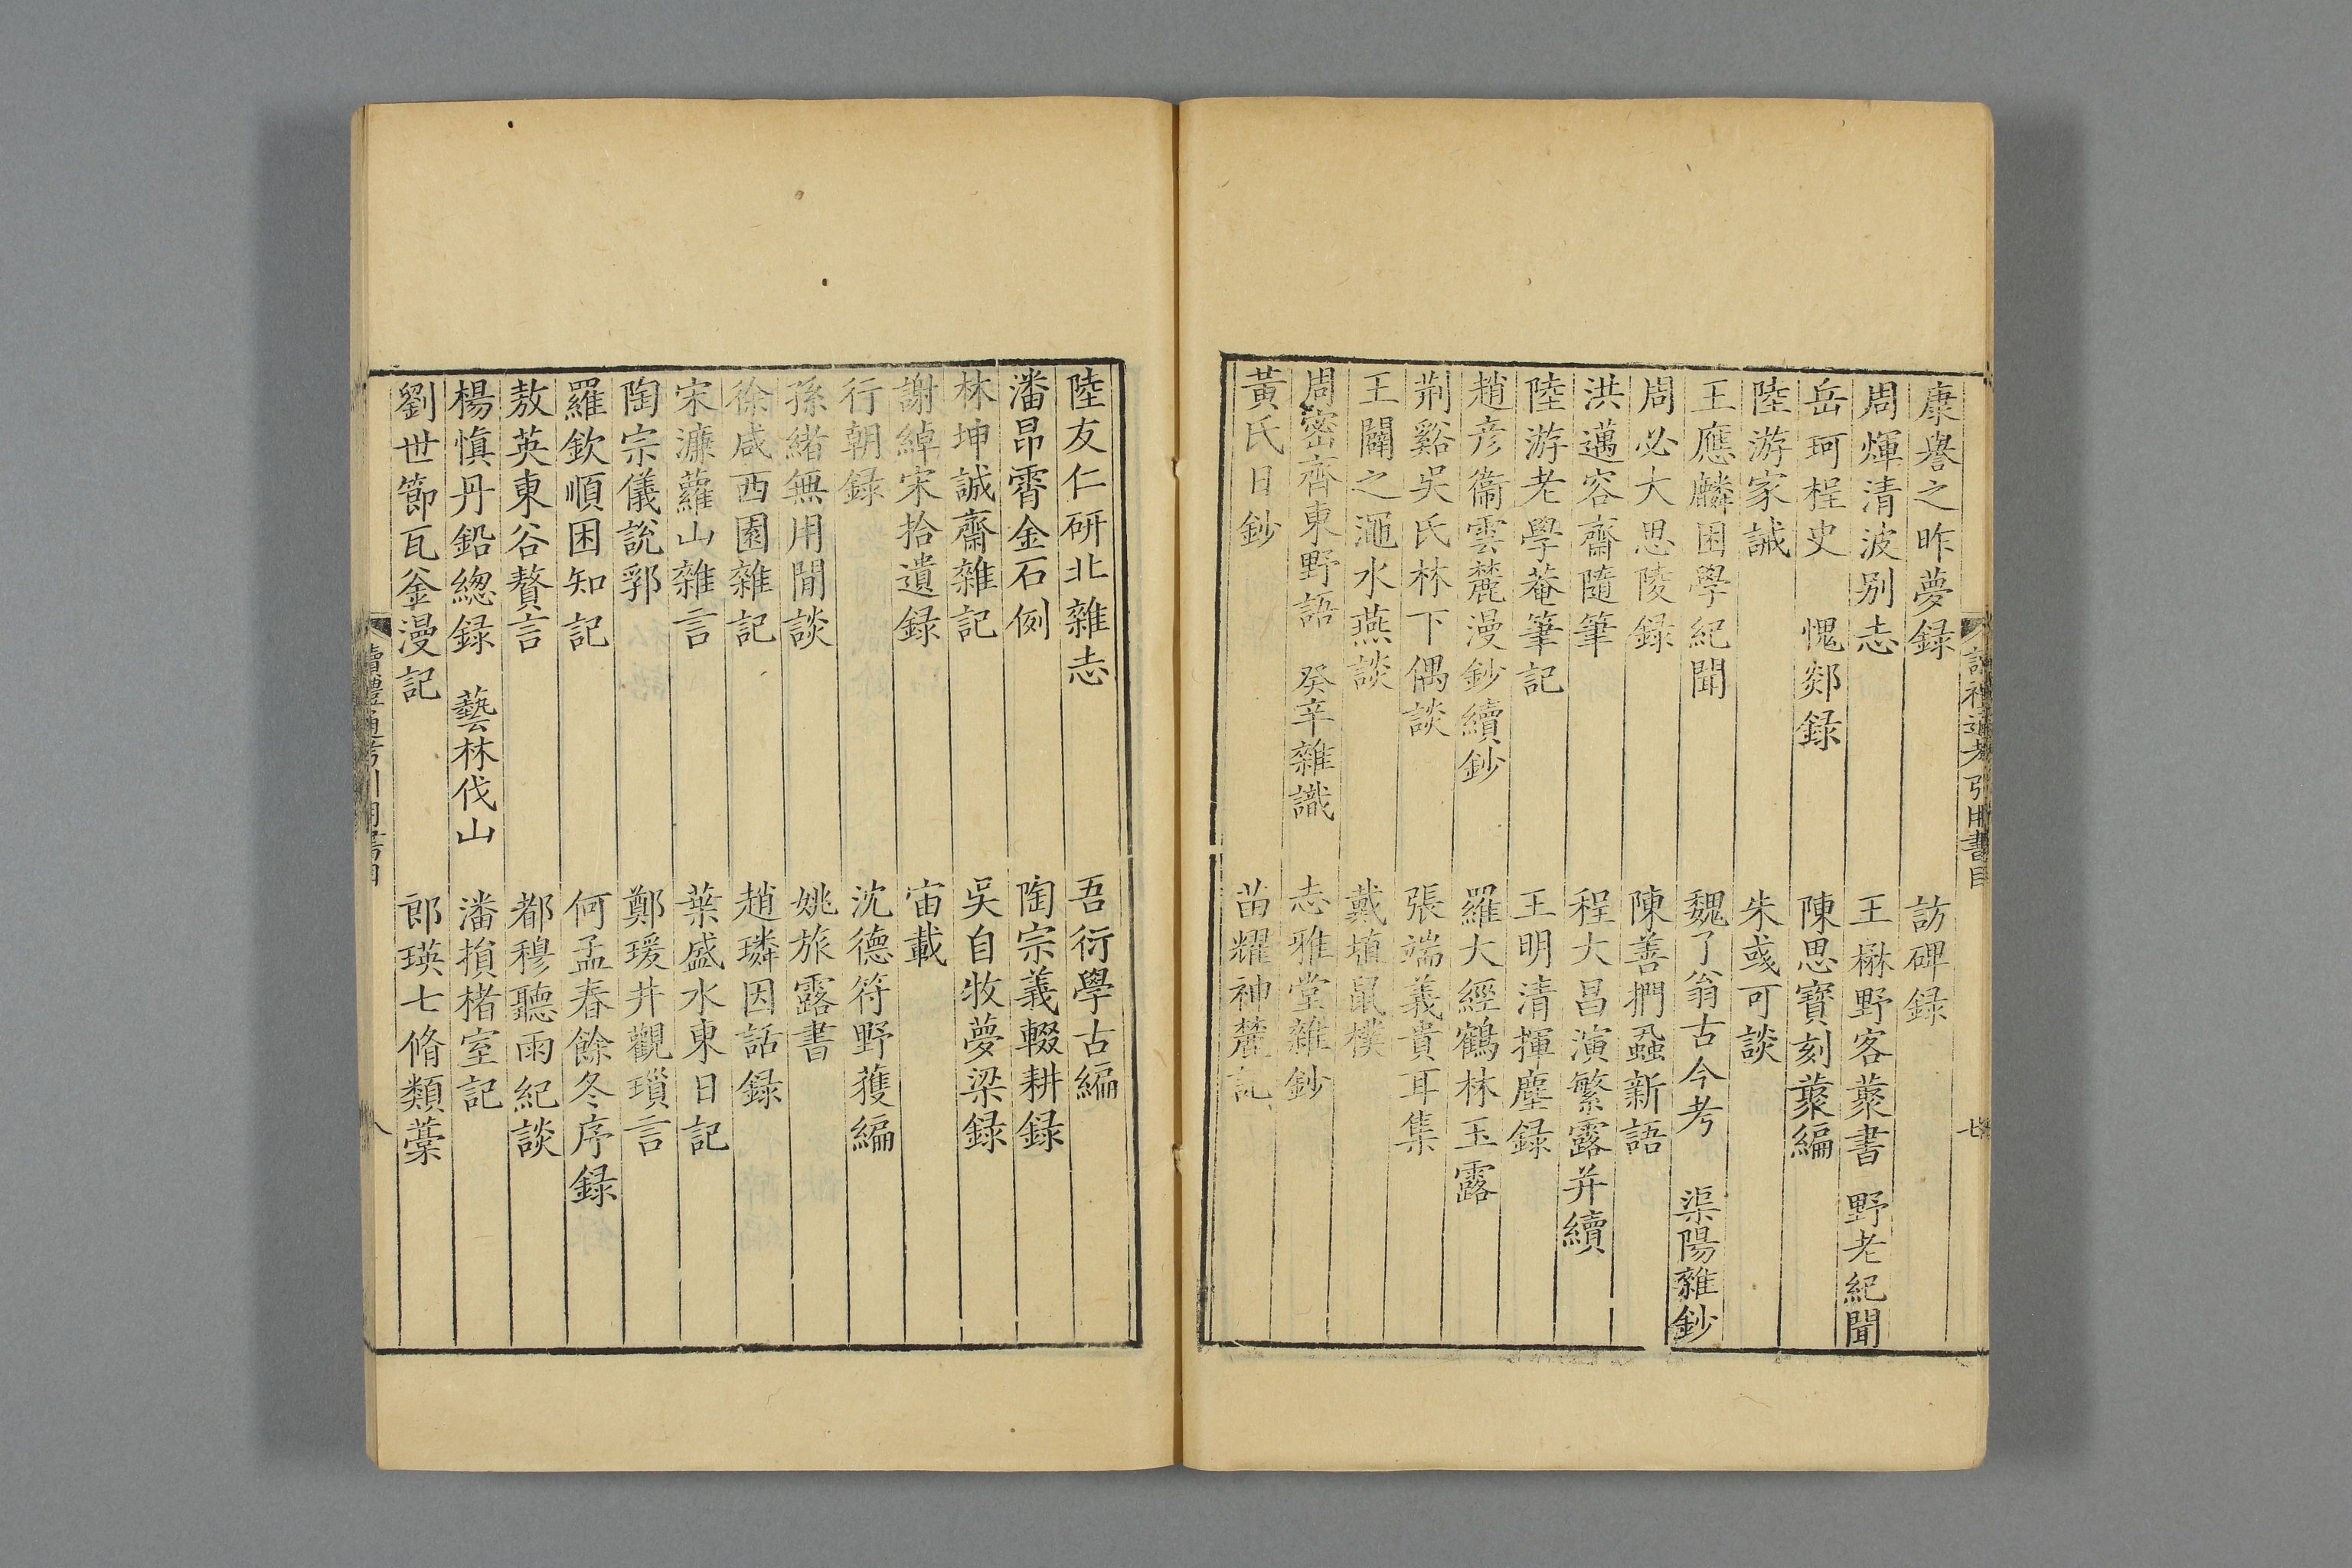 康譽之昨夢録　訪碑録
周煇清波别志　王楙野客叢書　野老紀聞
岳珂桯史　愧郯録　陳思寳刻叢編
陸游家誡　朱彧可談
王應麟困學紀聞　魏了翁古今考　渠陽雜鈔
周必大思陵録　陳善捫蝨新語
洪邁容齋隨筆　程大昌演繁露并續
陸游老學菴筆記　王明清揮塵録
趙彦衞雲麓漫鈔續鈔　羅大經鶴林玉露
荊谿吳氏林下偶談　張端義貴耳集
王闢之澠水燕談　戴埴鼠樸
周密齊東野語　癸辛雜識　志雅堂雜鈔
黃氏日鈔　苗耀神麓記
讀禮通考引用書目　七
陸友仁研北雜志　吾衍學古編
潘昂霄金石例　陶宗義輟耕録
林坤誠齋雜記　吳自牧夢梁録
謝綽宋拾遺録　宙載
行朝録　沈德符野獲編
孫緒無用閒談　姚旅露書
徐咸西園雜記　趙璘因話録
宋濂蘿山雜言　葉盛水東日記
陶宗儀說郛　鄭瑗井觀瑣言
羅欽順困知記　何孟春餘冬序録
敖英東谷贅言　都穆聽雨紀談
楊慎丹鉛緫録　藝林伐山　潘塤楮室記
劉世節瓦釜漫記　郎瑛七脩類藁
讀禮通考引用書目　八